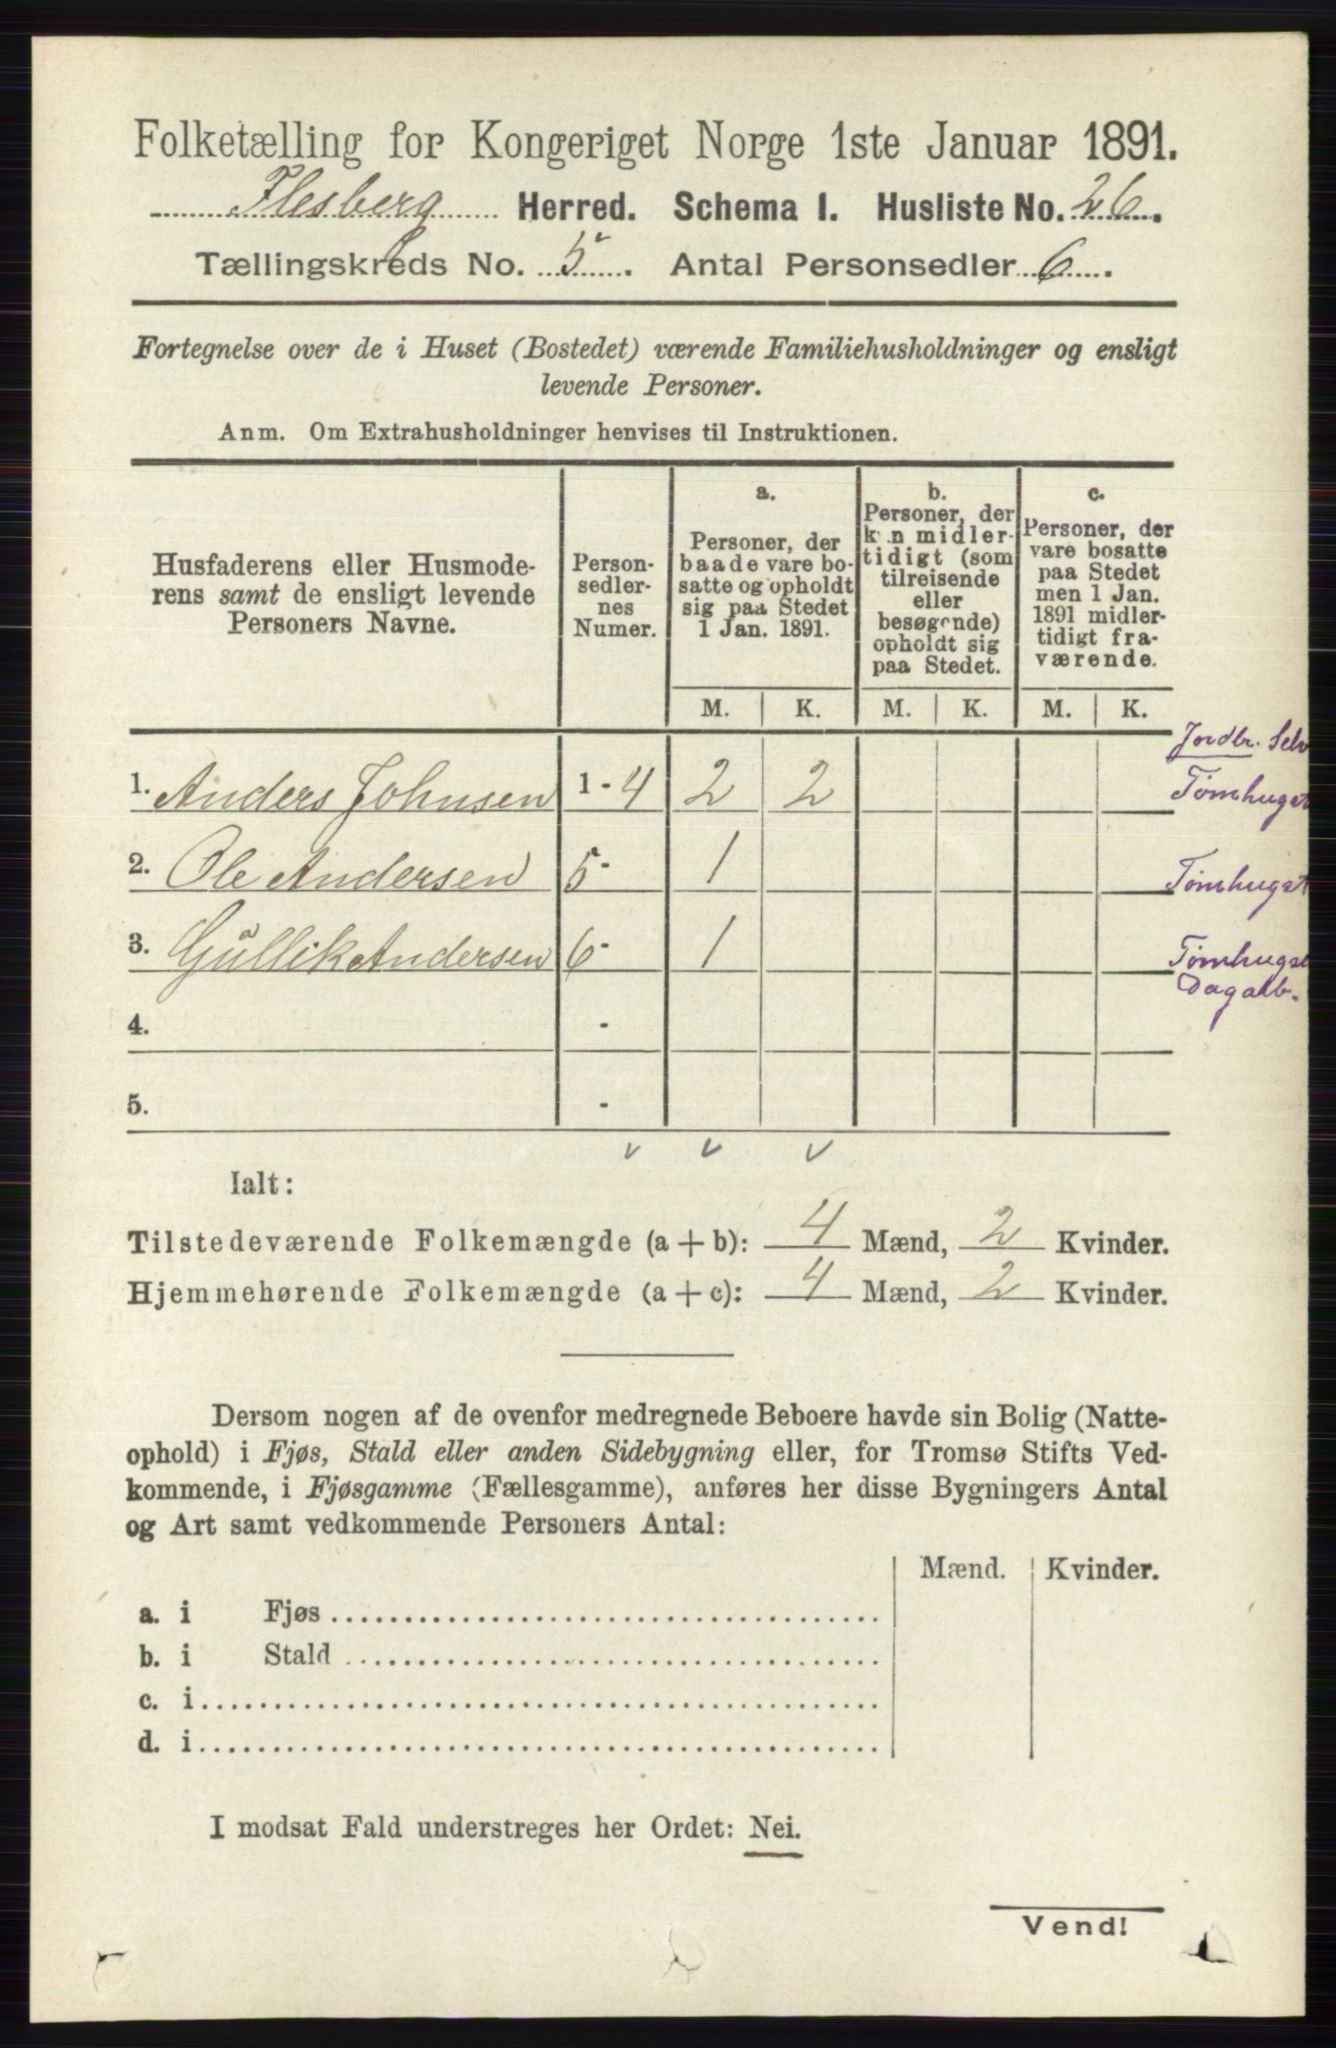 Folketælling for Kongeriget Norge 1ste Januar 1891.
Flesberg Herred. Schema I. Husliste No. 26.
Tællingskreds No. 5. Antal Personsedler 6.
Fortegnelse over de i Huset (Bostedet) værende Familiehusholdninger og ensligt
levende Personer.
Anm. Om Extrahusholdninger henvises til Instruktionen.
Husfaderens eller Husmode-
rens samt de ensligt levende
Personers Navne.
Person-
sedler-
nes
Numer.
a.
Personer, der
baade vare bo-
satte og opholdt
sig paa Stedet
1 Jan. 1891.
b.
Personer, der
kun midler-
tidigt (som
tilreisende
eller
besøgende)
opholdt sig
paa Stedet.
c.
Personer, der
vare bosatte
paa Stedet
men 1 Jan.
1891 midler-
tidigt fra-
værende.
M. K. M. K. M. K.
Jordbr. Selv
1. Anders Johnsen 1 - 4 2 2 Tømhugst
2. Ole Andersen 5 - 1 Tømhugst
3. Gullik Andersen 6 - 1 Tømhugst
Dagarb.
4. -
5. -
Ialt:
Tilstedeværende Folkemængde (a + b): 4 Mænd, 2 Kvinder.
Hjemmehørende Folkemængde (a + c): 4 Mænd, 2 Kvinder.
Dersom nogen af de ovenfor medregnede Beboere havde sin Bolig (Natte-
ophold) i Fjøs, Stald eller anden Sidebygning eller, for Tromsø Stifts Ved-
kommende, i Fjøsgamme (Fællesgamme), anføres her disse Bygningers Antal
og Art samt vedkommende Personers Antal:
Mænd. Kvinder.
a. i Fjøs
b. i Stald
c. i
d. i
I modsat Fald understreges her Ordet: Nei.
Vend!